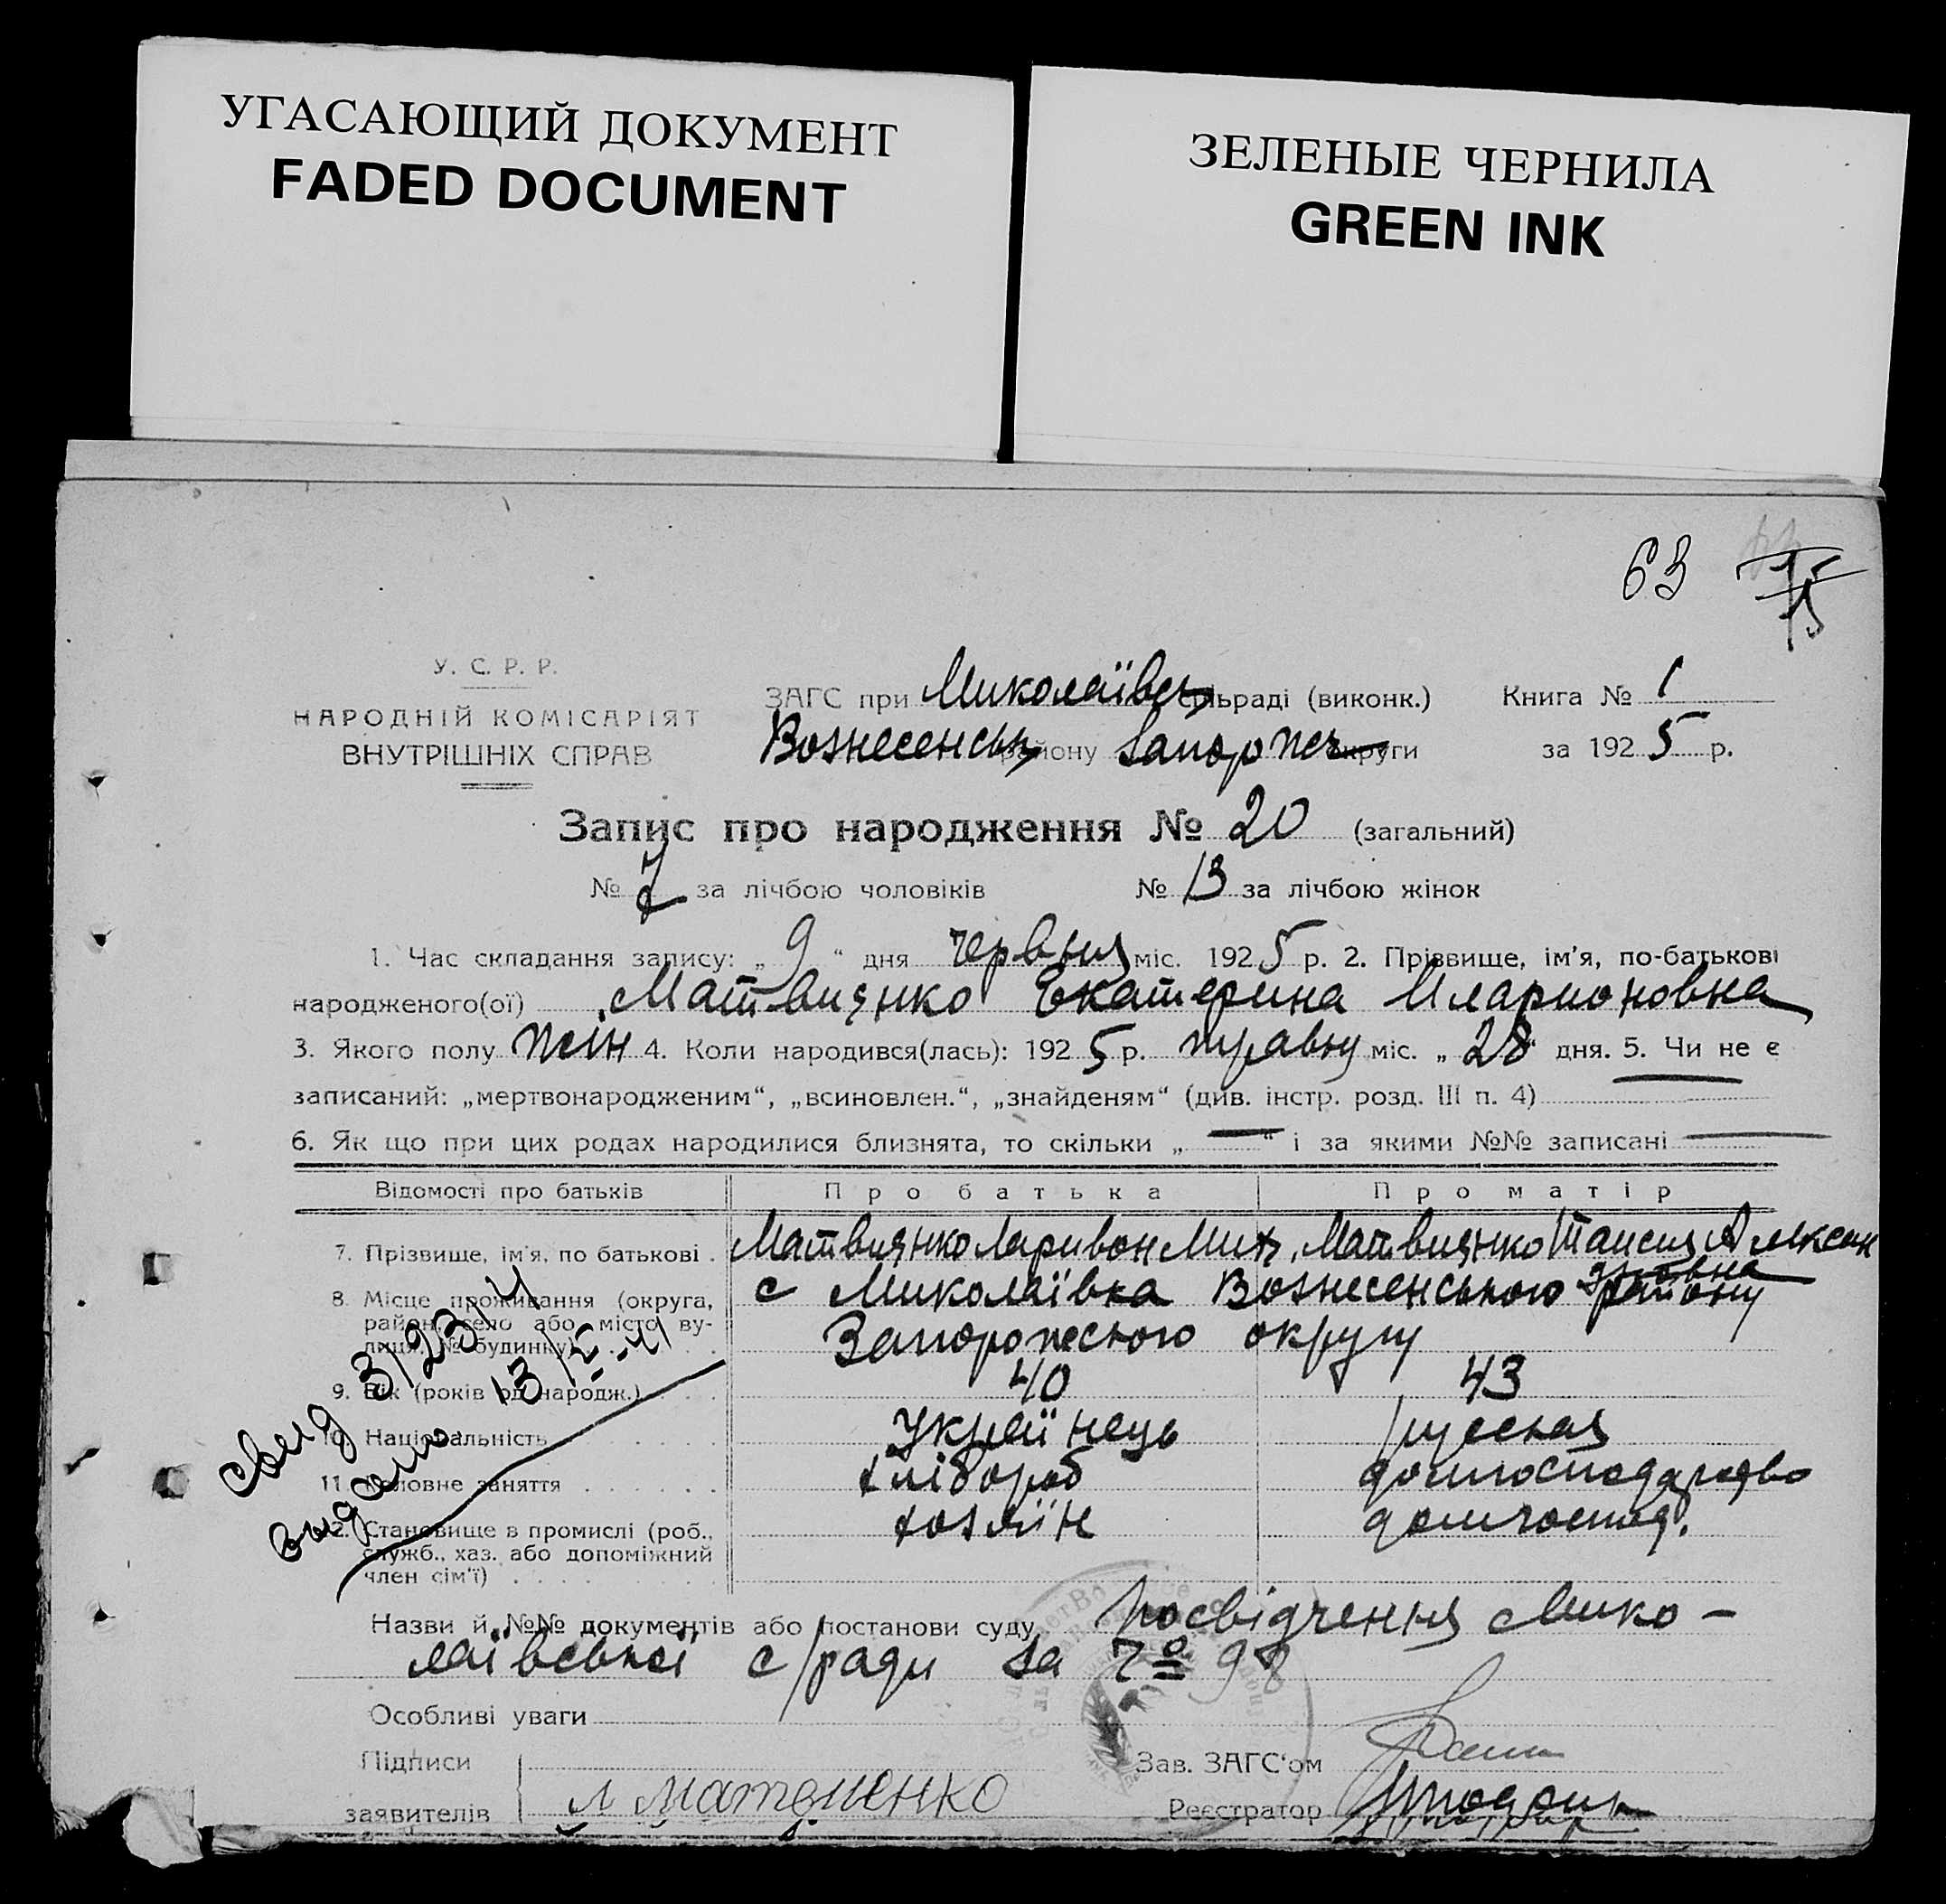 УГАСАЮЩИЙ ДОКУМЕНТ
FADED DOCUMENT
ЗЕЛЕНЫЕ ЧЕРНИЛА
GREEN INK
63
У. С. Р. Р.
НАРОДНІЙ КОМІСАРІЯТ
ВНУТРІШНІХ СПРАВ
ЗАГС при Миколаївськ сільраді (виконк.) Книга № 1
Вознесенськ району Запорож округи за 1925 р.
Запис про народження № 20 (загальний)
№ 7 за лічбою чоловіків № 13 за лічбою жінок
1. Час складання запису: „ 9 “ дня червня міс. 1925 р. 2. Прізвище, ім'я, по-батькові
народженого(ої) Матвиянко Екатерина Иларионовна
3. Якого полу жін 4. Коли народився(лась): 1925 р. травня міс. „ 28 “ дня. 5. Чи не є
записаний: „мертвонародженим“, „всиновлен.“, „знайденям“ (див. інстр. розд. III п. 4)
6. Як що при цих родах народилися близнята, то скільки „ — “ і за якими №№ записані —
Відомості про батьків Про батька Про матір
7. Прізвище, ім'я, по батькові . Матвиянко Ларивон Мих. Матвиянко Таисия Александровна
8. Місце проживання (округа, район, село або місто, вулиця, № будинку) с Миколаївка Вознесенського району
Запорожского округу
9. Вік (років од народж.) 40 43
10. Національність Українець русская
11. Головне заняття хлібороб домгосподарство
12. Становище в промислі (роб., служб., хаз. або допоміжний член сім'ї) хозяїн домгоспод.
свид 3/23
выдано 13/V-41
Назви й №№ документів або постанови суду Посвідчення Мико-
лаївської с/ради за № 98
Особливі уваги
Підписи
заявителів Л Матвиенко
Зав. ЗАГС'ом
Реєстратор